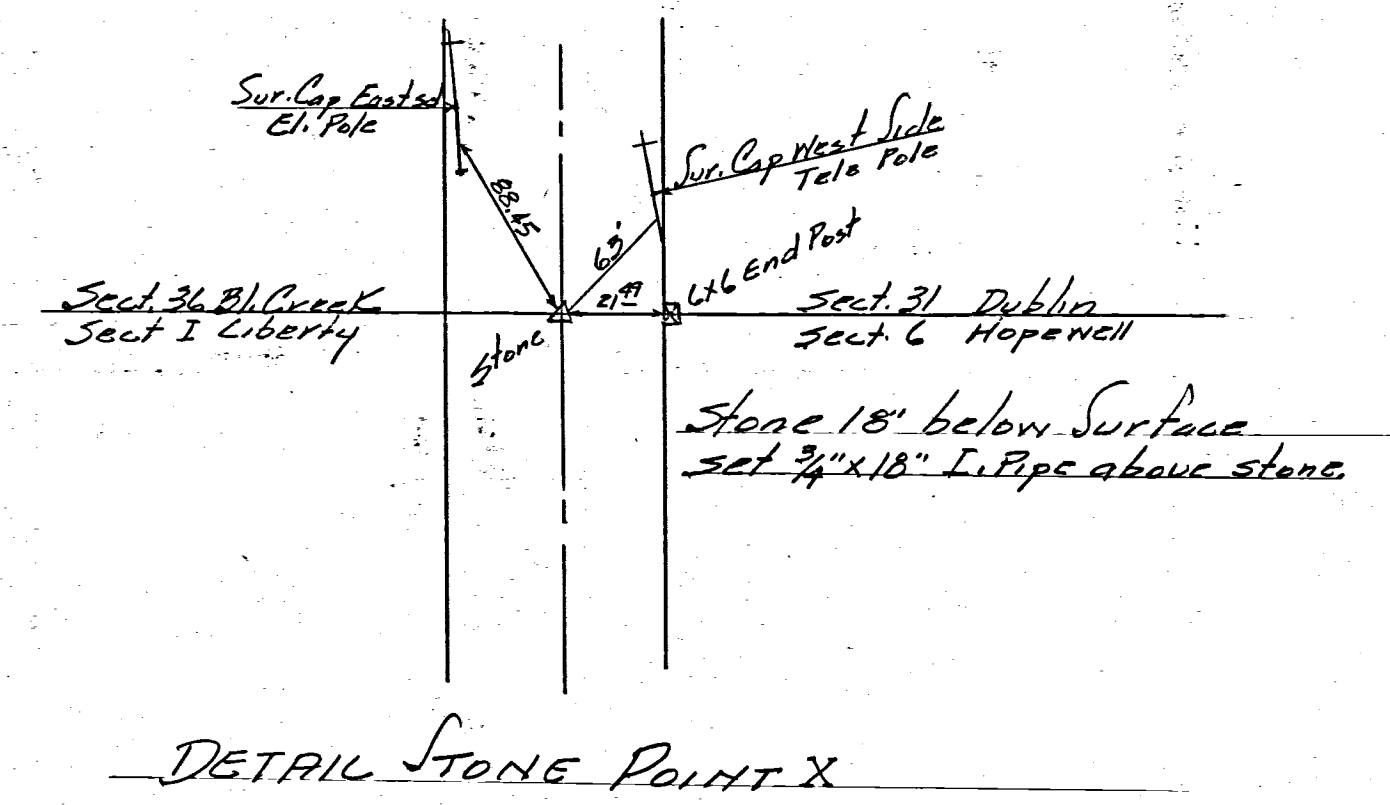 Sur. Cap East sd
El. Pole
Sur. Cap West Side
Tele Pole
88.45
63'
21.49
6x6 End Post
Sect. 36 Bl. Creek
Sect I Liberty
Stone
Sect. 31 Dublin
Sect. 6 Hopewell
Stone 18" below Surface
set 3/4" x 18" I. Pipe above stone.
DETAIL STONE POINT X